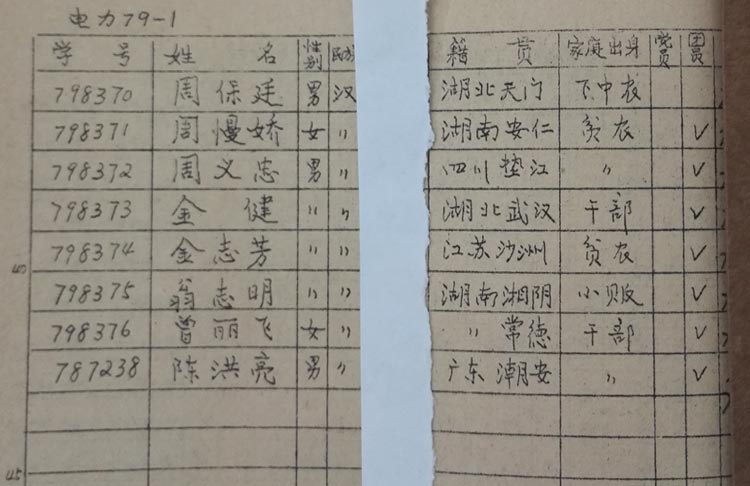 电力79-1
学号 姓名 性别 民族 籍贯 家庭出身 党员 团员
798370 周保廷 男 汉 湖北天门 下中农
798371 周慢娇 女 〃 湖南安仁 贫农 ✓
798372 周义忠 男 〃 四川垫江 〃 ✓
798373 金健 〃 〃 湖北武汉 干部 ✓
798374 金志芳 〃 〃 江苏沙洲 贫农 ✓
798375 翁志明 〃 〃 湖南湘阴 小贩 ✓
798376 曾丽飞 女 〃 〃 常德 干部 ✓
787238 陈洪亮 男 〃 广东潮安 〃 ✓
45